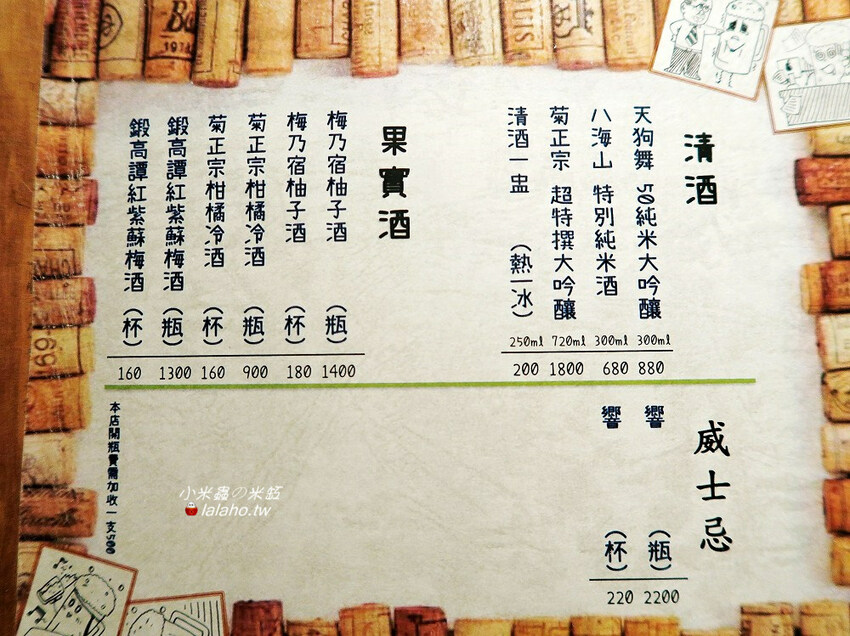 清酒
天狗舞 50純米大吟釀 300ml 880
八海山 特別純米酒 300ml 680
菊正宗 超特撰大吟釀 720ml 1800
清酒一盅 (熱—冰) 250ml 200
果實酒
梅乃宿柚子酒 (瓶) 1400
梅乃宿柚子酒 (杯) 180
菊正宗柑橘冷酒 (瓶) 900
菊正宗柑橘冷酒 (杯) 160
鍛高譚紅紫蘇梅酒 (瓶) 1300
鍛高譚紅紫蘇梅酒 (杯) 160
威士忌
響 (瓶) 2200
響 (杯) 220
本店開瓶費需加收一支500
小米蟲の米缸
lalaho.tw